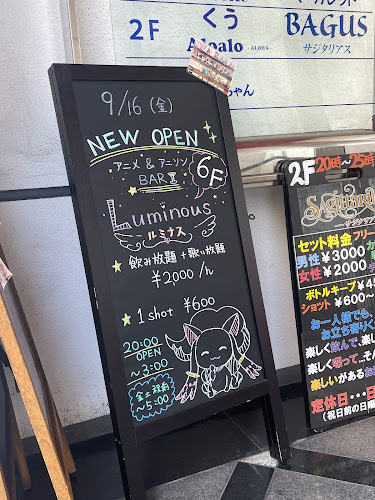 2F
くう
Aloalo
-ALOHA-
BAGUS
サジタリアス
ちゃん
9/16 (金)
NEW OPEN
アニメ & アニソン
BAR
6F
Luminous
ルミナス
飲み放題 + 歌い放題
¥2,000 /h
1 shot ¥600
20:00
OPEN
~3:00
金土祝前
~5:00
2F 20時~25時
Sagittarius
サジタリアス
セット料金 フリー
男性 ¥3000
女性 ¥2000
ボトルキープ ¥45
ショット ¥600~
お一人様でも、
お立ち寄りく
楽しく飲んで、楽し
楽しく唄って、そん
楽しいがあるお
定休日・・・日
(祝日前の日曜